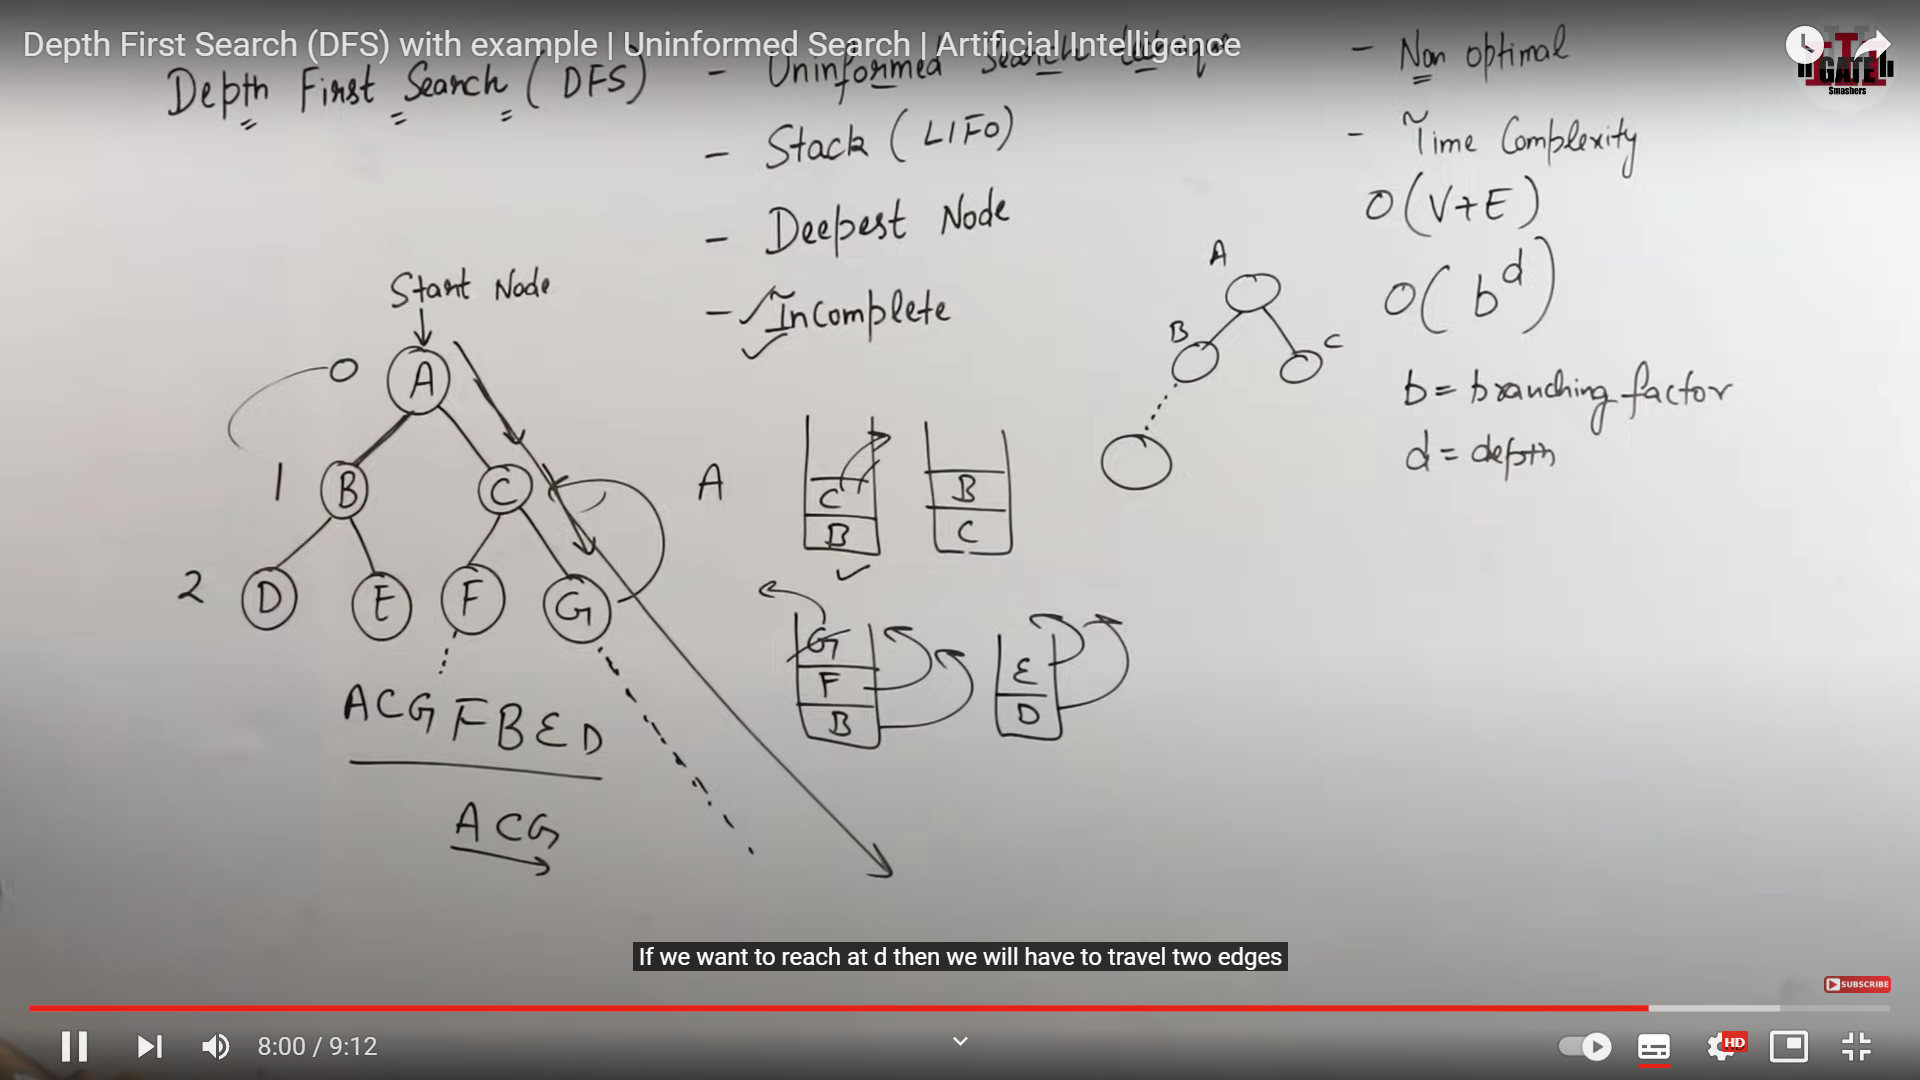 Depth First Search (DFS) with example | Uninformed Search | Artificial Intelligence
Depth First Search (DFS)
- Uninformed Search
- Stack (LIFO)
- Deepest Node
- Incomplete
- Non optimal
- Time Complexity
O(V+E)
O(b^d)
b = branching factor
d = depth
GATE
Smashers
Start Node
0
A
1
B
C
2
D
E
F
G
ACGFBED
ACG
A
C
B
B
C
G
F
B
E
D
A
B
C
If we want to reach at d then we will have to travel two edges
SUBSCRIBE
8:00 / 9:12
HD